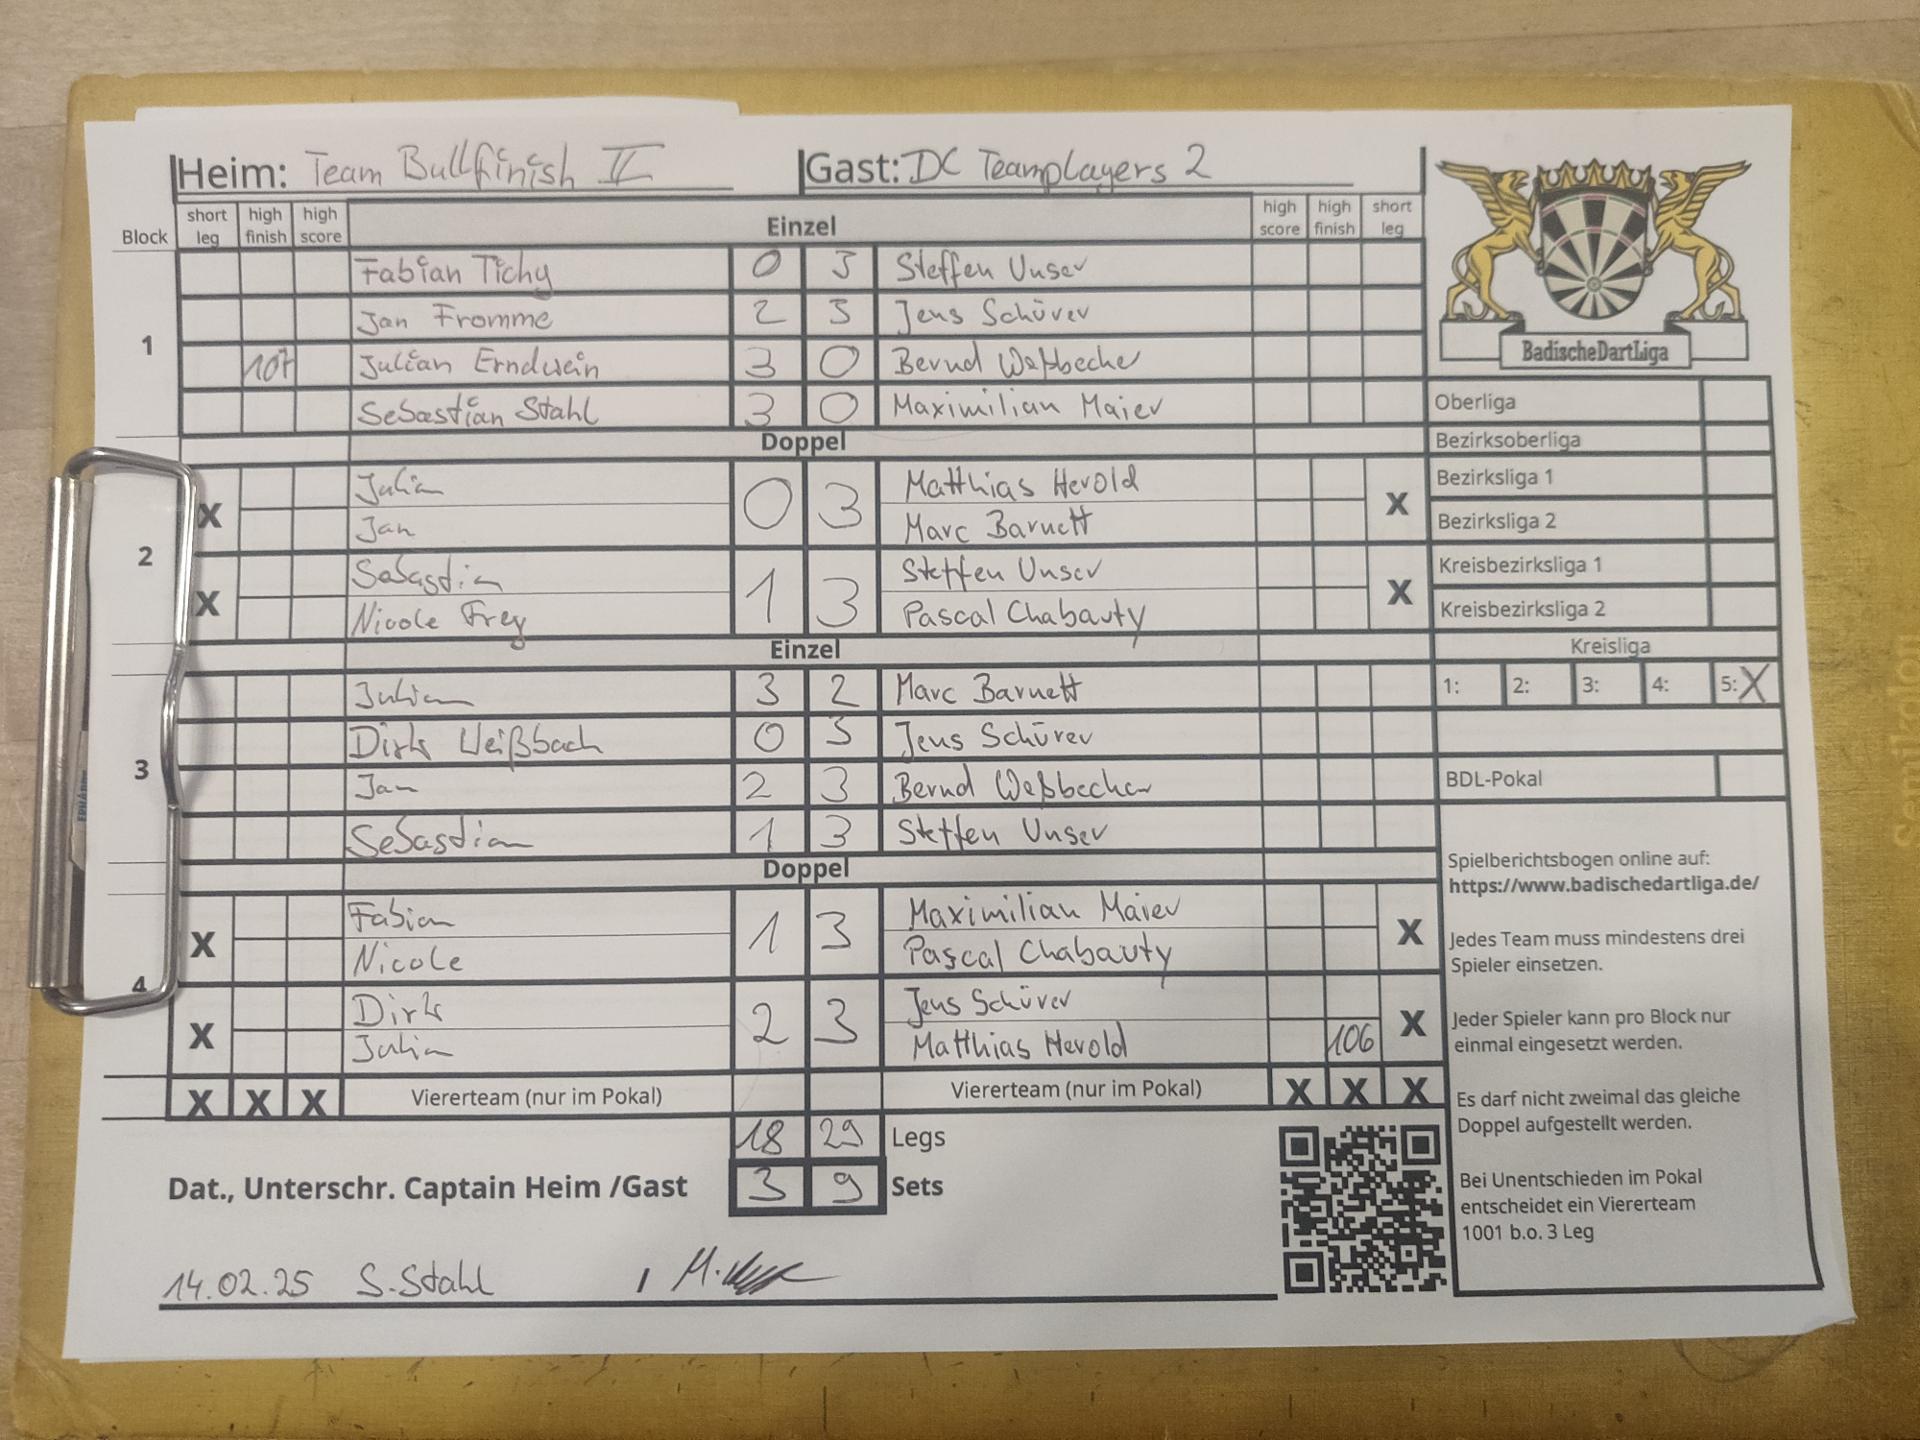 Heim: Team Bullfinish II Gast: DC Teamplayers 2
Block short leg high finish high score Einzel high score high finish short leg
1
Fabian Tichy 0 3 Steffen Unser
Jan Fromme 2 3 Jens Schürer
107 Julian Erndwein 3 0 Bernd Weßbecher
Sebastian Stahl 3 0 Maximilian Maier
Doppel
2
X Julian 0 3 Matthias Herold X
Jan Marc Barnett
X Sebastian 1 3 Steffen Unser X
Nicole Frey Pascal Chabauty
Einzel
3
Julian 3 2 Marc Barnett
Dirk Weißbach 0 3 Jens Schürer
Jan 2 3 Bernd Weßbecher
Sebastian 1 3 Steffen Unser
Doppel
4
X Fabian 1 3 Maximilian Maier X
Nicole Pascal Chabauty
X Dirk 2 3 Jens Schürer X
Julian Matthias Herold 106
X X X Viererteam (nur im Pokal) Viererteam (nur im Pokal) X X X
18 29 Legs
Dat., Unterschr. Captain Heim /Gast 3 9 Sets
14.02.25 S.Stahl / M.
BadischeDartLiga
Oberliga
Bezirksoberliga
Bezirksliga 1
Bezirksliga 2
Kreisbezirksliga 1
Kreisbezirksliga 2
Kreisliga
1: 2: 3: 4: 5: X
BDL-Pokal
Spielberichtsbogen online auf:
https://www.badischedartliga.de/
Jedes Team muss mindestens drei
Spieler einsetzen.
Jeder Spieler kann pro Block nur
einmal eingesetzt werden.
Es darf nicht zweimal das gleiche
Doppel aufgestellt werden.
Bei Unentschieden im Pokal
entscheidet ein Viererteam
1001 b.o. 3 Leg